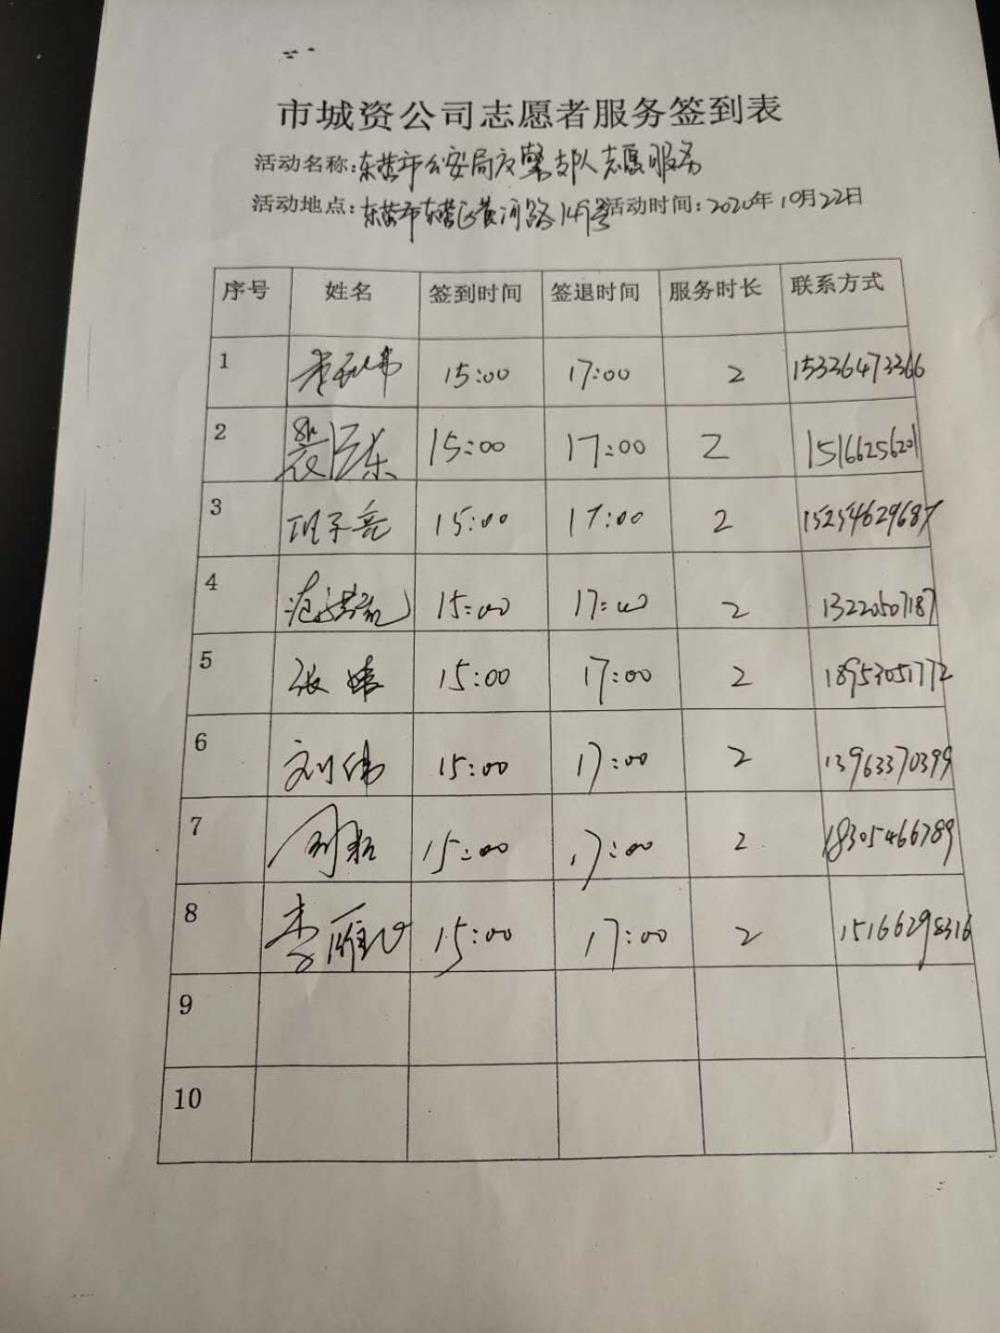 市城资公司志愿者服务签到表
活动名称:东营市公安局交警支队志愿服务
活动地点:东营市东营区黄河路149号活动时间:2020年10月22日
序号 姓名 签到时间 签退时间 服务时长 联系方式
1 15:00 17:00 2 15326473366
2 15:00 17:00 2 15166256201
3 15:00 17:00 2 15254629687
4 15:00 17:00 2 13220507187
5 张婧 15:00 17:00 2 18953051772
6 刘伟 15:00 17:00 2 13963370399
7 15:00 17:00 2 18305466789
8 李雁 15:00 17:00 2 15166298316
9
10